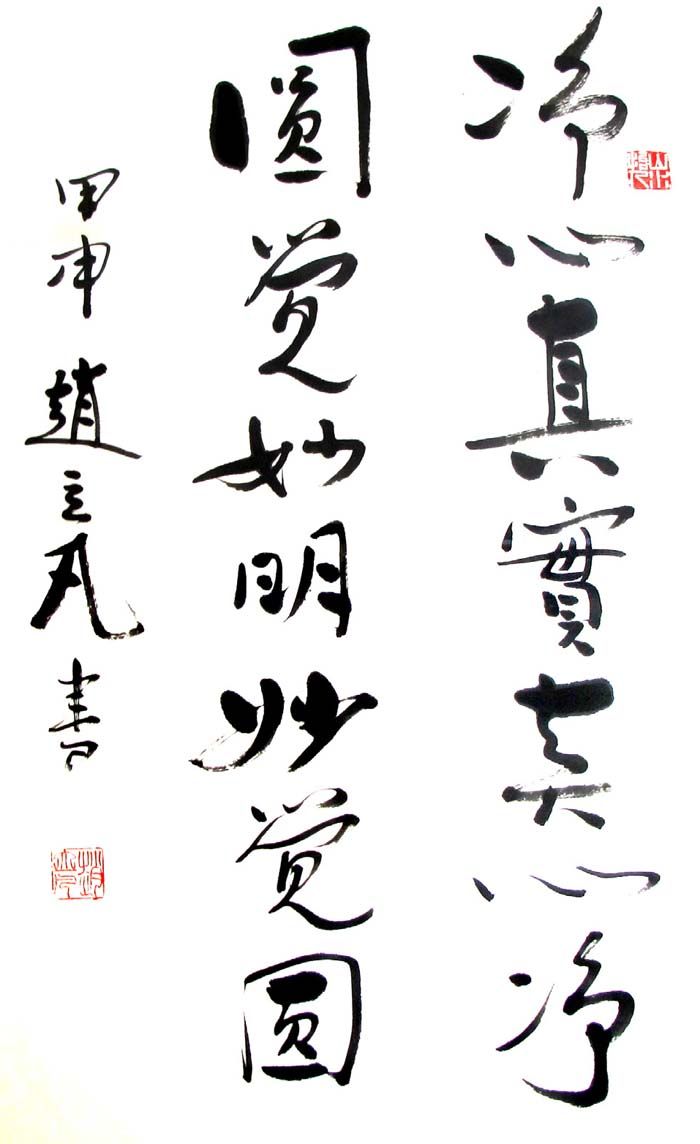 净心真實真心净
圓覺妙明妙覺圓
甲申 趙立凡書